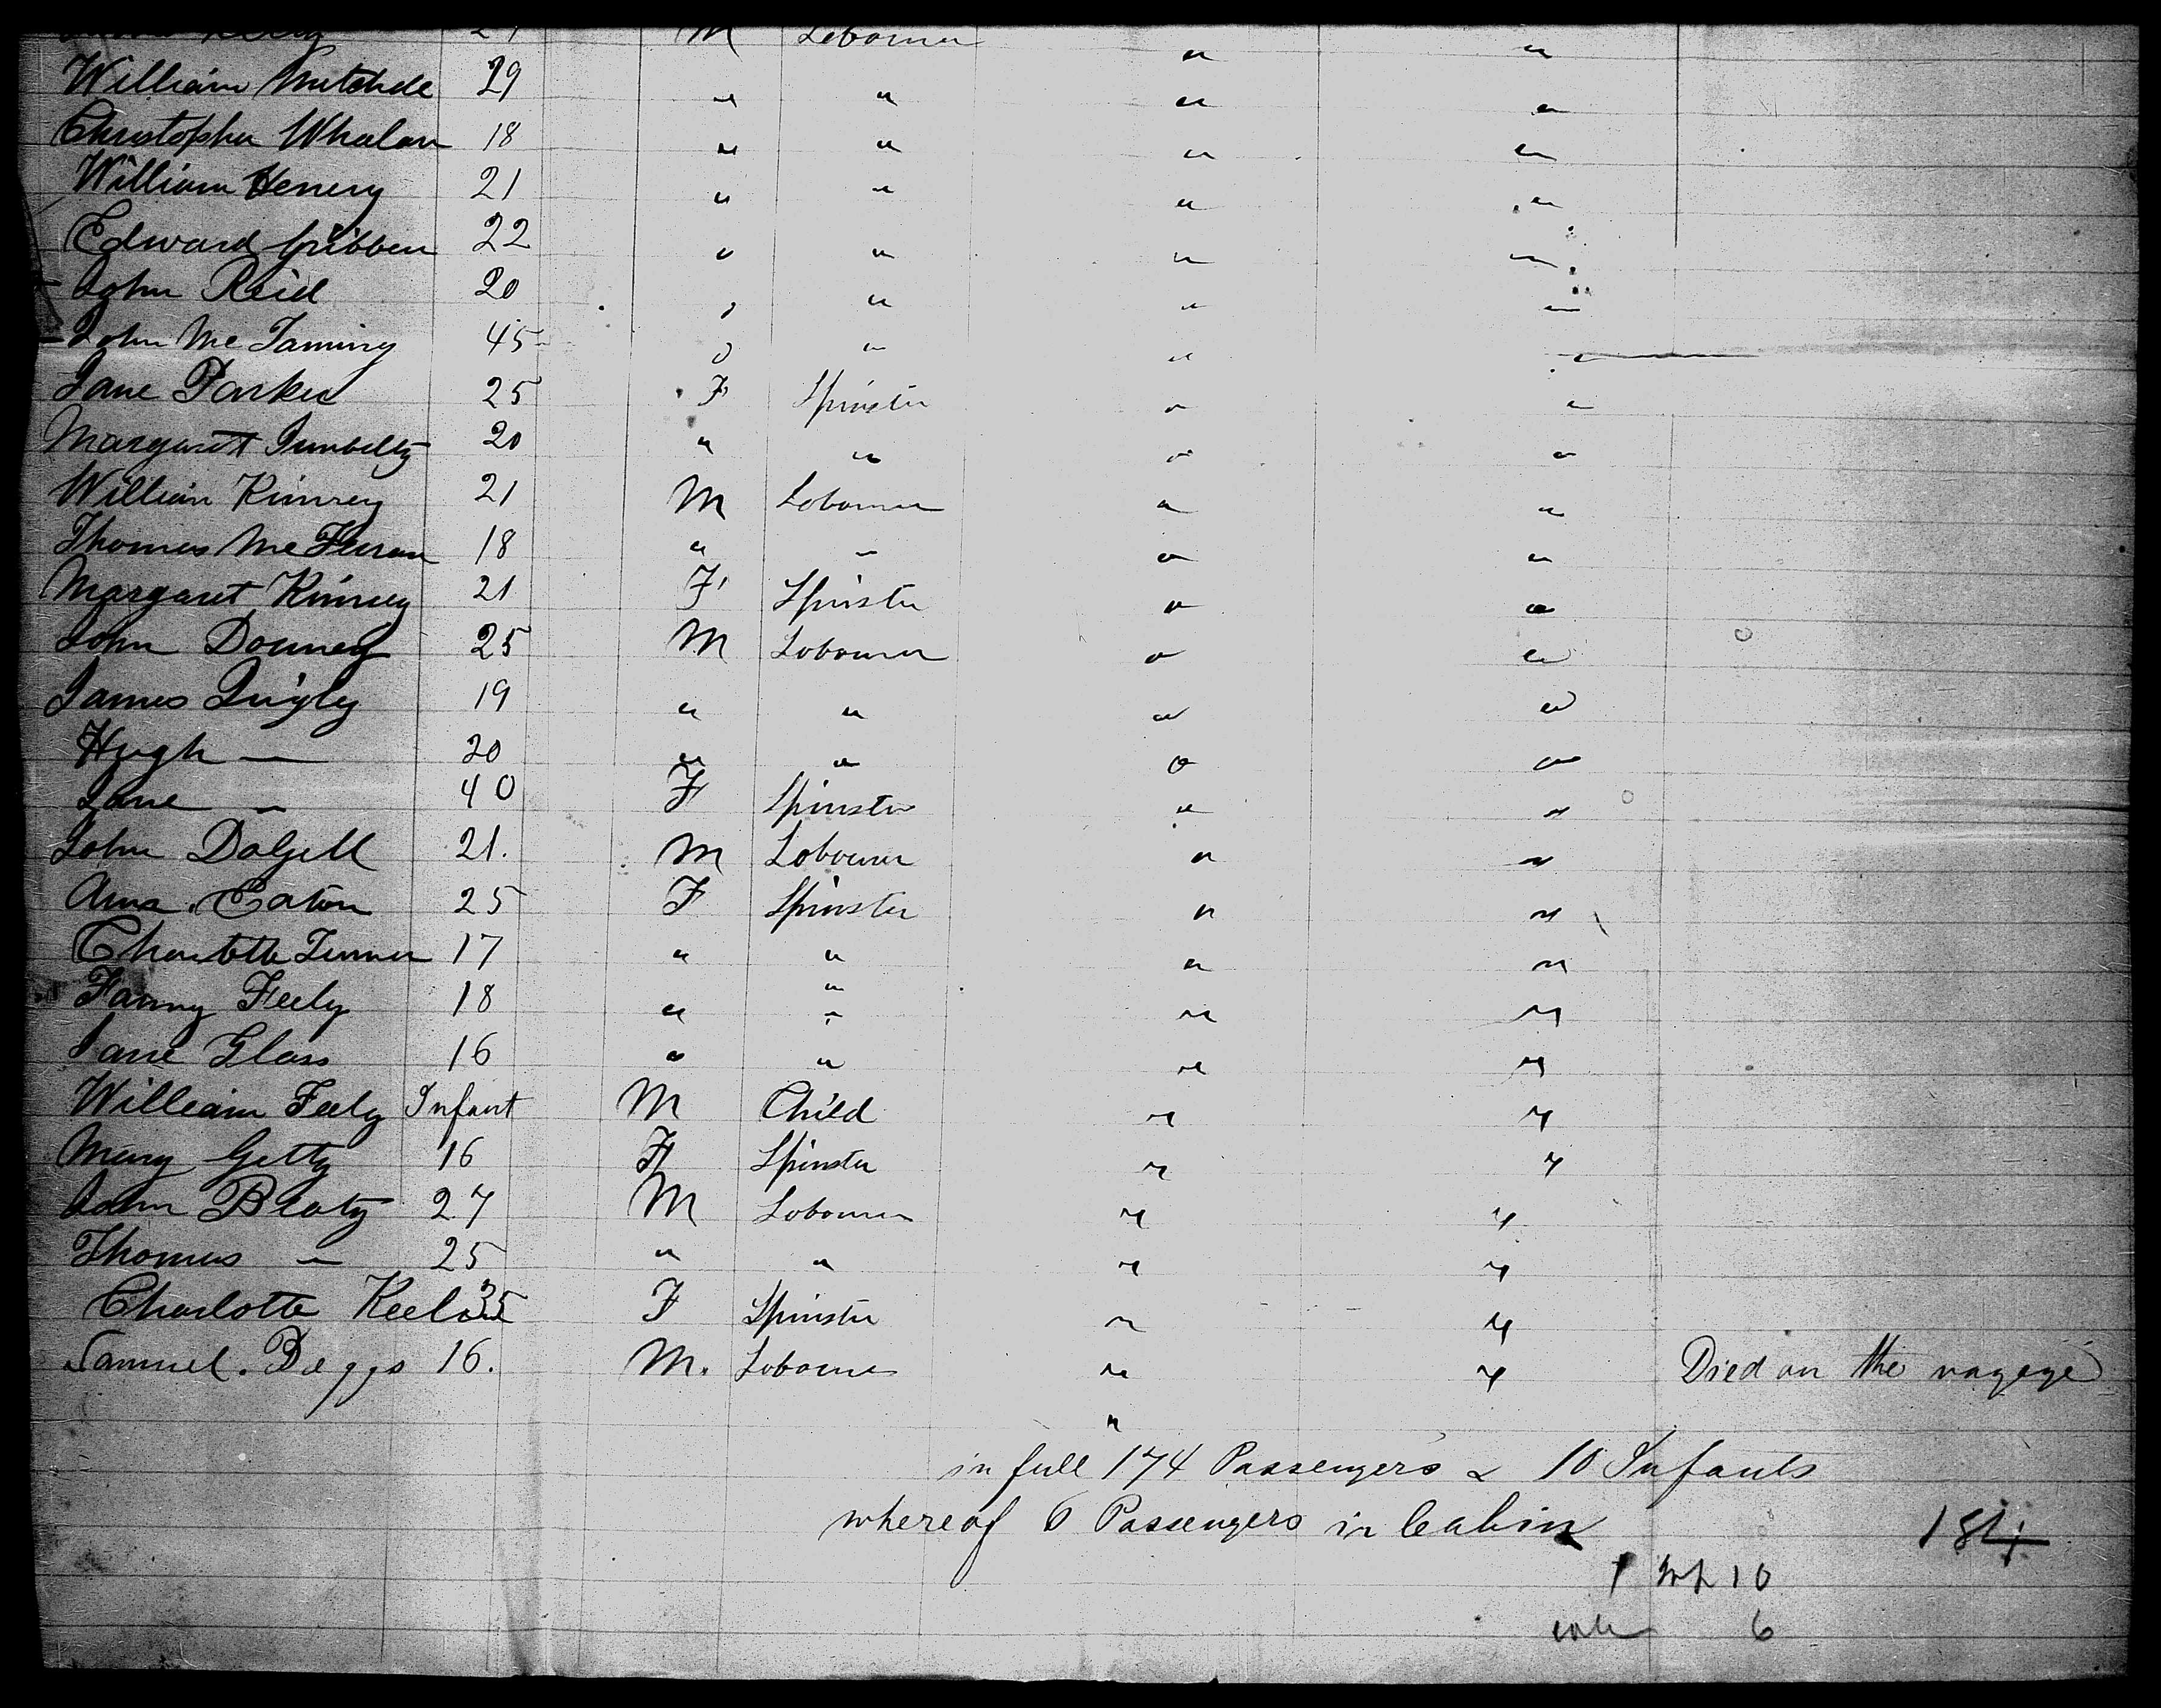 M Labourer " "
William Mitchele 29 " " " "
Christopher Whalan 18 " " " "
William Henery 21 " " " "
Edward Gribben 22 " " " "
John Reid 20 " " " "
John Mc 45 " " " "
Jane Parker 25 F Spinster " "
Margaret 20 " " " "
William Kinney 21 M Labourer " "
Thomas Mc 18 " " " "
Margaret Kinney 21 F Spinster " "
John Downey 25 M Labourer " "
James Quigley 19 " " " "
Hugh — 20 " " " "
Jane — 40 F Spinster " "
John Dalzell 21. M Labourer " "
Ann Eaton 25 F Spinster " "
Charlotte Turner 17 " " " "
Fanny Feely 18 " " " "
Jane Glass 16 " " " "
William Feely Infant M Child " "
Mary Getty 16 F Spinster " "
John Beaty 27 M Labourer " "
Thomas — 25 " " " "
Charlotte 35 F Spinster " "
Samuel. Beggs 16. M. Labourer " " Died on the voyage
"
in full 174 Passengers & 10 Infants
whereof 6 Passengers in Cabin
184
10
6